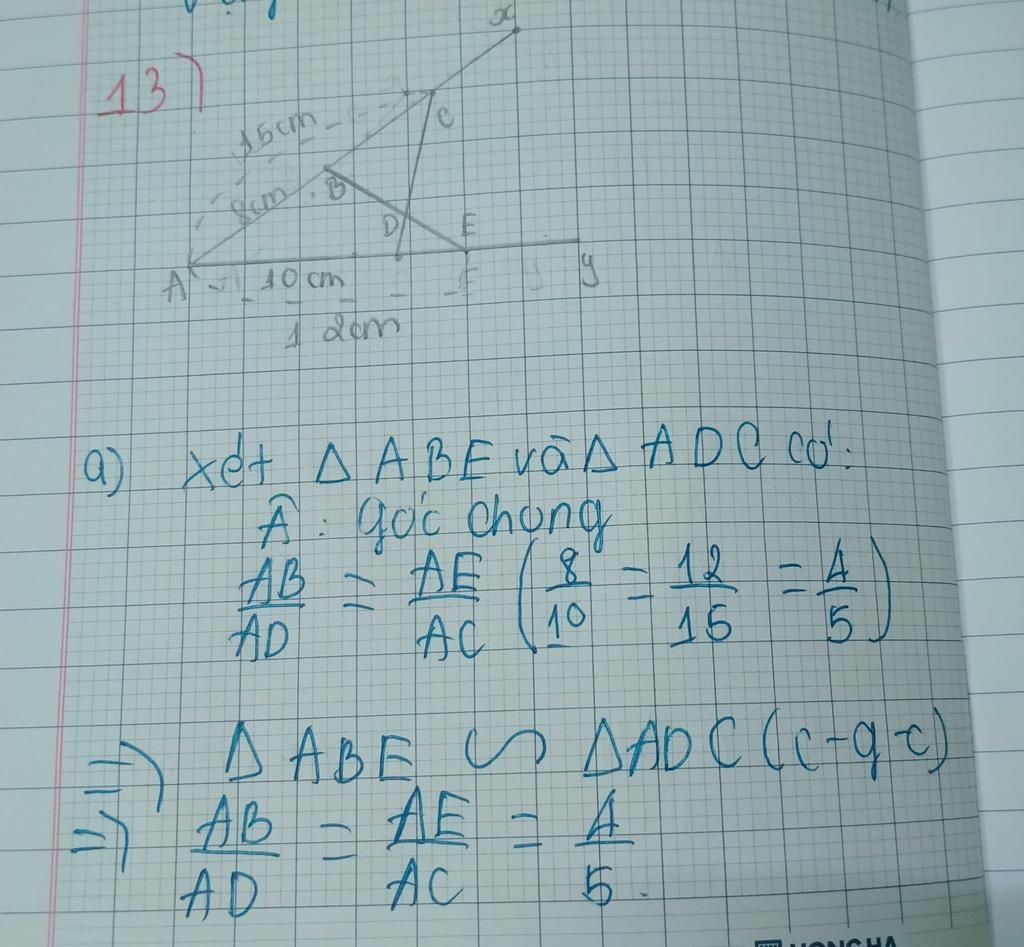 13)
x
C
15cm
B
8cm
D E
A 10cm y
12cm
a) xét Δ ABE và Δ ADC có:
Â: góc chung
AB/AD = AE/AC (8/10 = 12/15 = 4/5)
=> Δ ABE ∽ ΔADC (c-g-c)
=> AB/AD = AE/AC = 4/5.
HONG HA